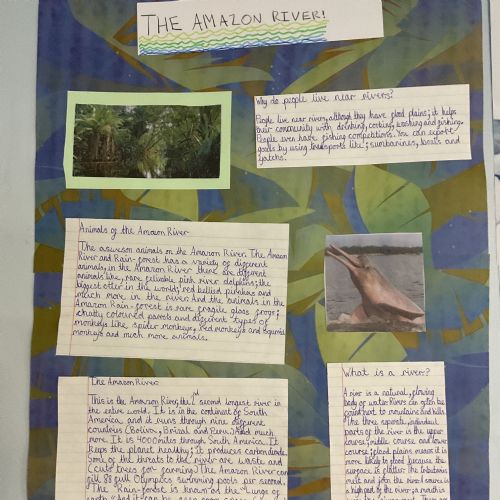 THE AMAZON RIVER!
Why do people live near rivers?
People live near river, although they have flood plains; it helps
their community with drinking, cooking, washing and fishing.
People even have fishing competitions. You can export
goods by using transports like; sumbarines, boats and
yatchs.
Animals of the Amazon River
The awesom animals on the Amazon River. The Amazon
River and Rain-forest has a variety of different
animals, in the Amazon River there are different
animals like, rare, pink river dolphins; the
biggest otter in the world; red bellied piranhas and
much more in the river. And the animals in the
Amazon Rain-forest is rare fragile glass frogs;
chatty coloured parrots and different types of
monkeys like, spider monkeys, red monkeys and squirrel
monkeys and much more animals.
The Amazon River
This is the Amazon River, the second longest river in
the entire world. It is in the continent of South
America and it runs through nine different
countries (Bolivia, Brazil and Peru) and much
more. It is 4000 miles through South America. It
keeps the planet healthy; it produces carbon dioxide.
Some of the threats to the river are waste and
(cuts trees for farming) The Amazon River can
fill 83 full Olympics swimming pools per second.
The Rain-forest is known as the "Lungs of
What is a river?
A river is a natural, flowing
body of water. Rivers can often be
found next to mountains and hills.
The three separate, individual
parts of the river is the upper
course, middle course and lower
course; flood plains means it is
more likely to flood because the
surface is flatter. The tributaries
melt and join the river. A source is
a high part of the river; a mouth is